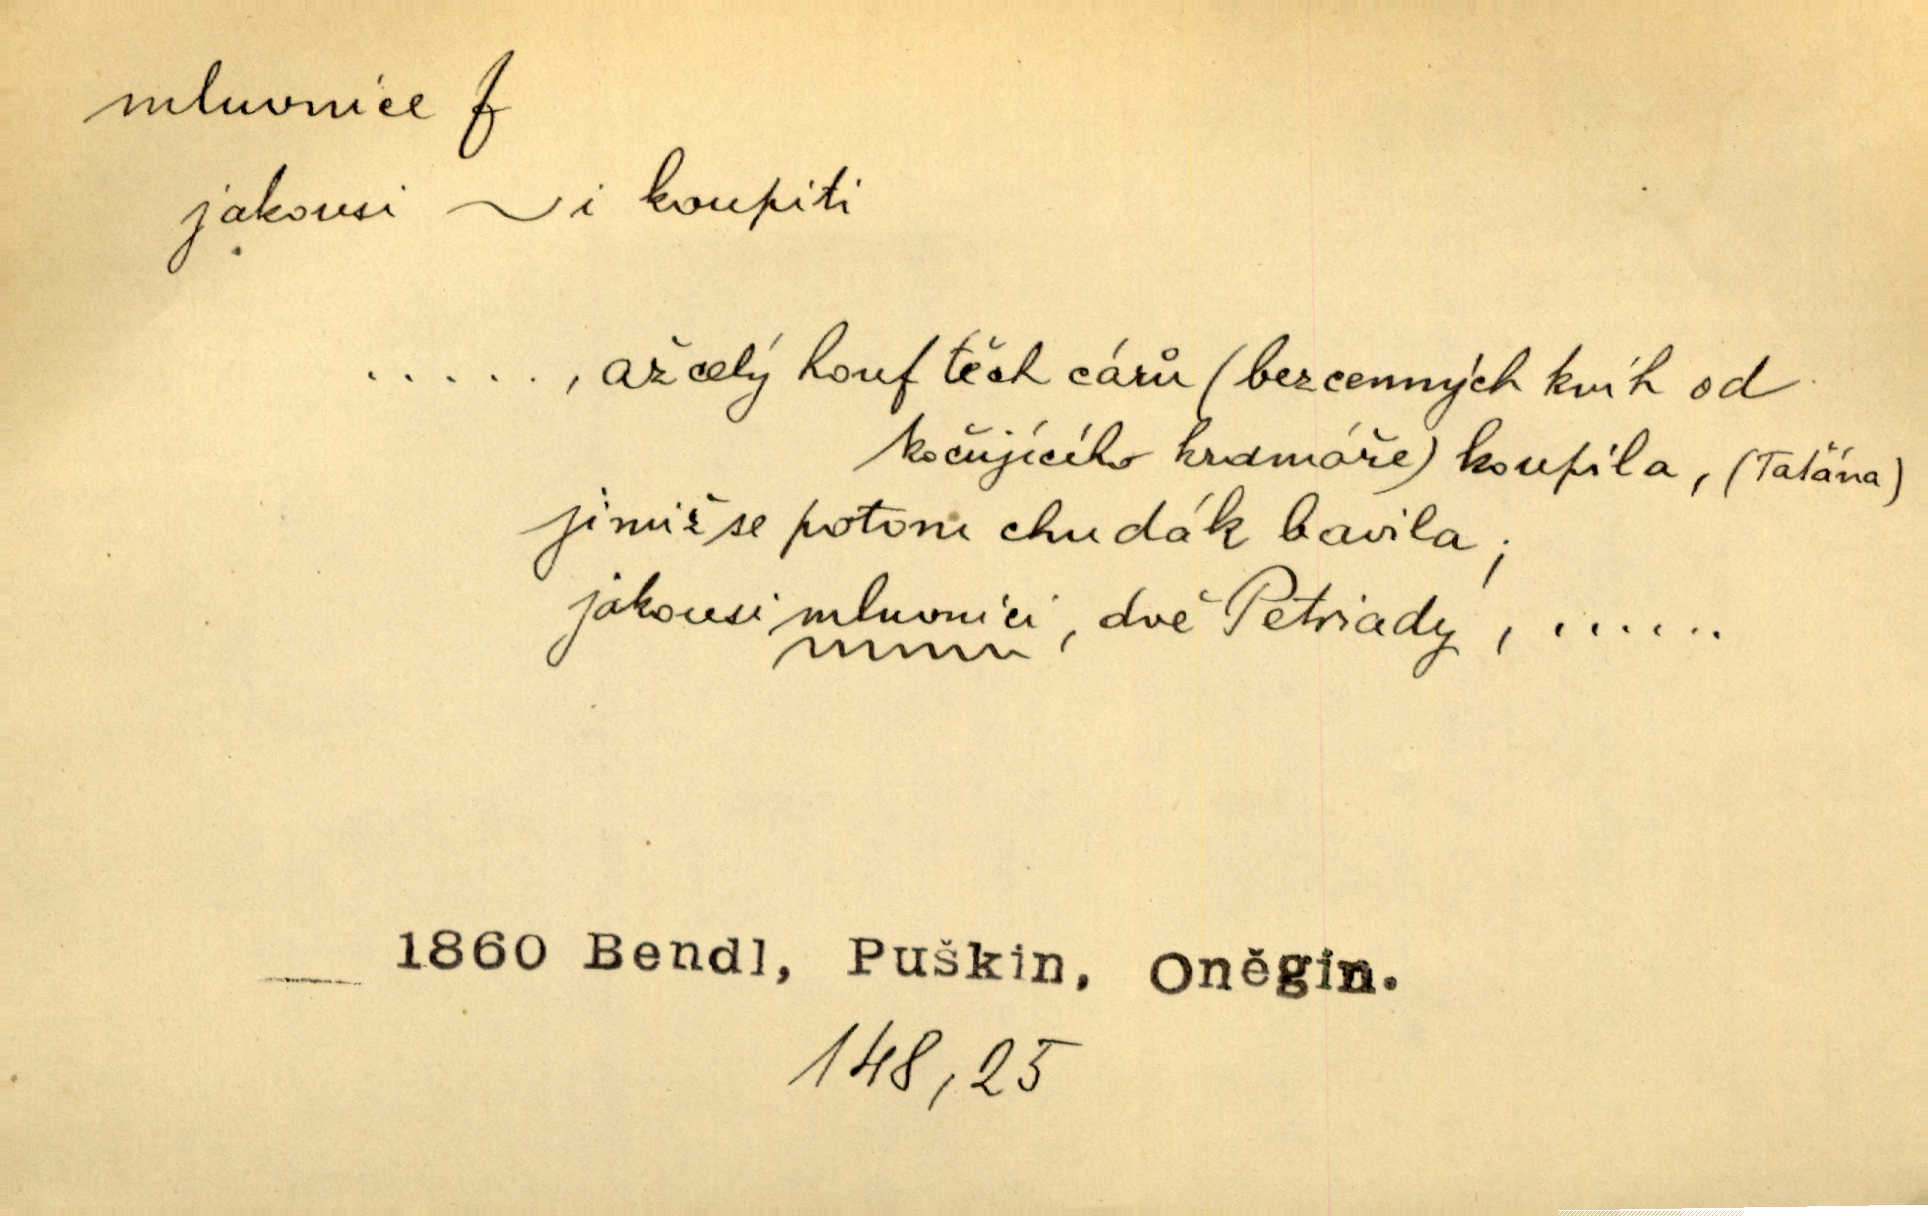 mluvnice f
jakousi ~i koupiti
......, až celý houf těch cárů (bezcenných knih od
kočujícího kramáře) koupila, (Taťána)
jimiž se potom chudák bavila;
jakousi mluvnici, dvě Petriady, ......
1860 Bendl, Puškin, Oněgin.
148,25